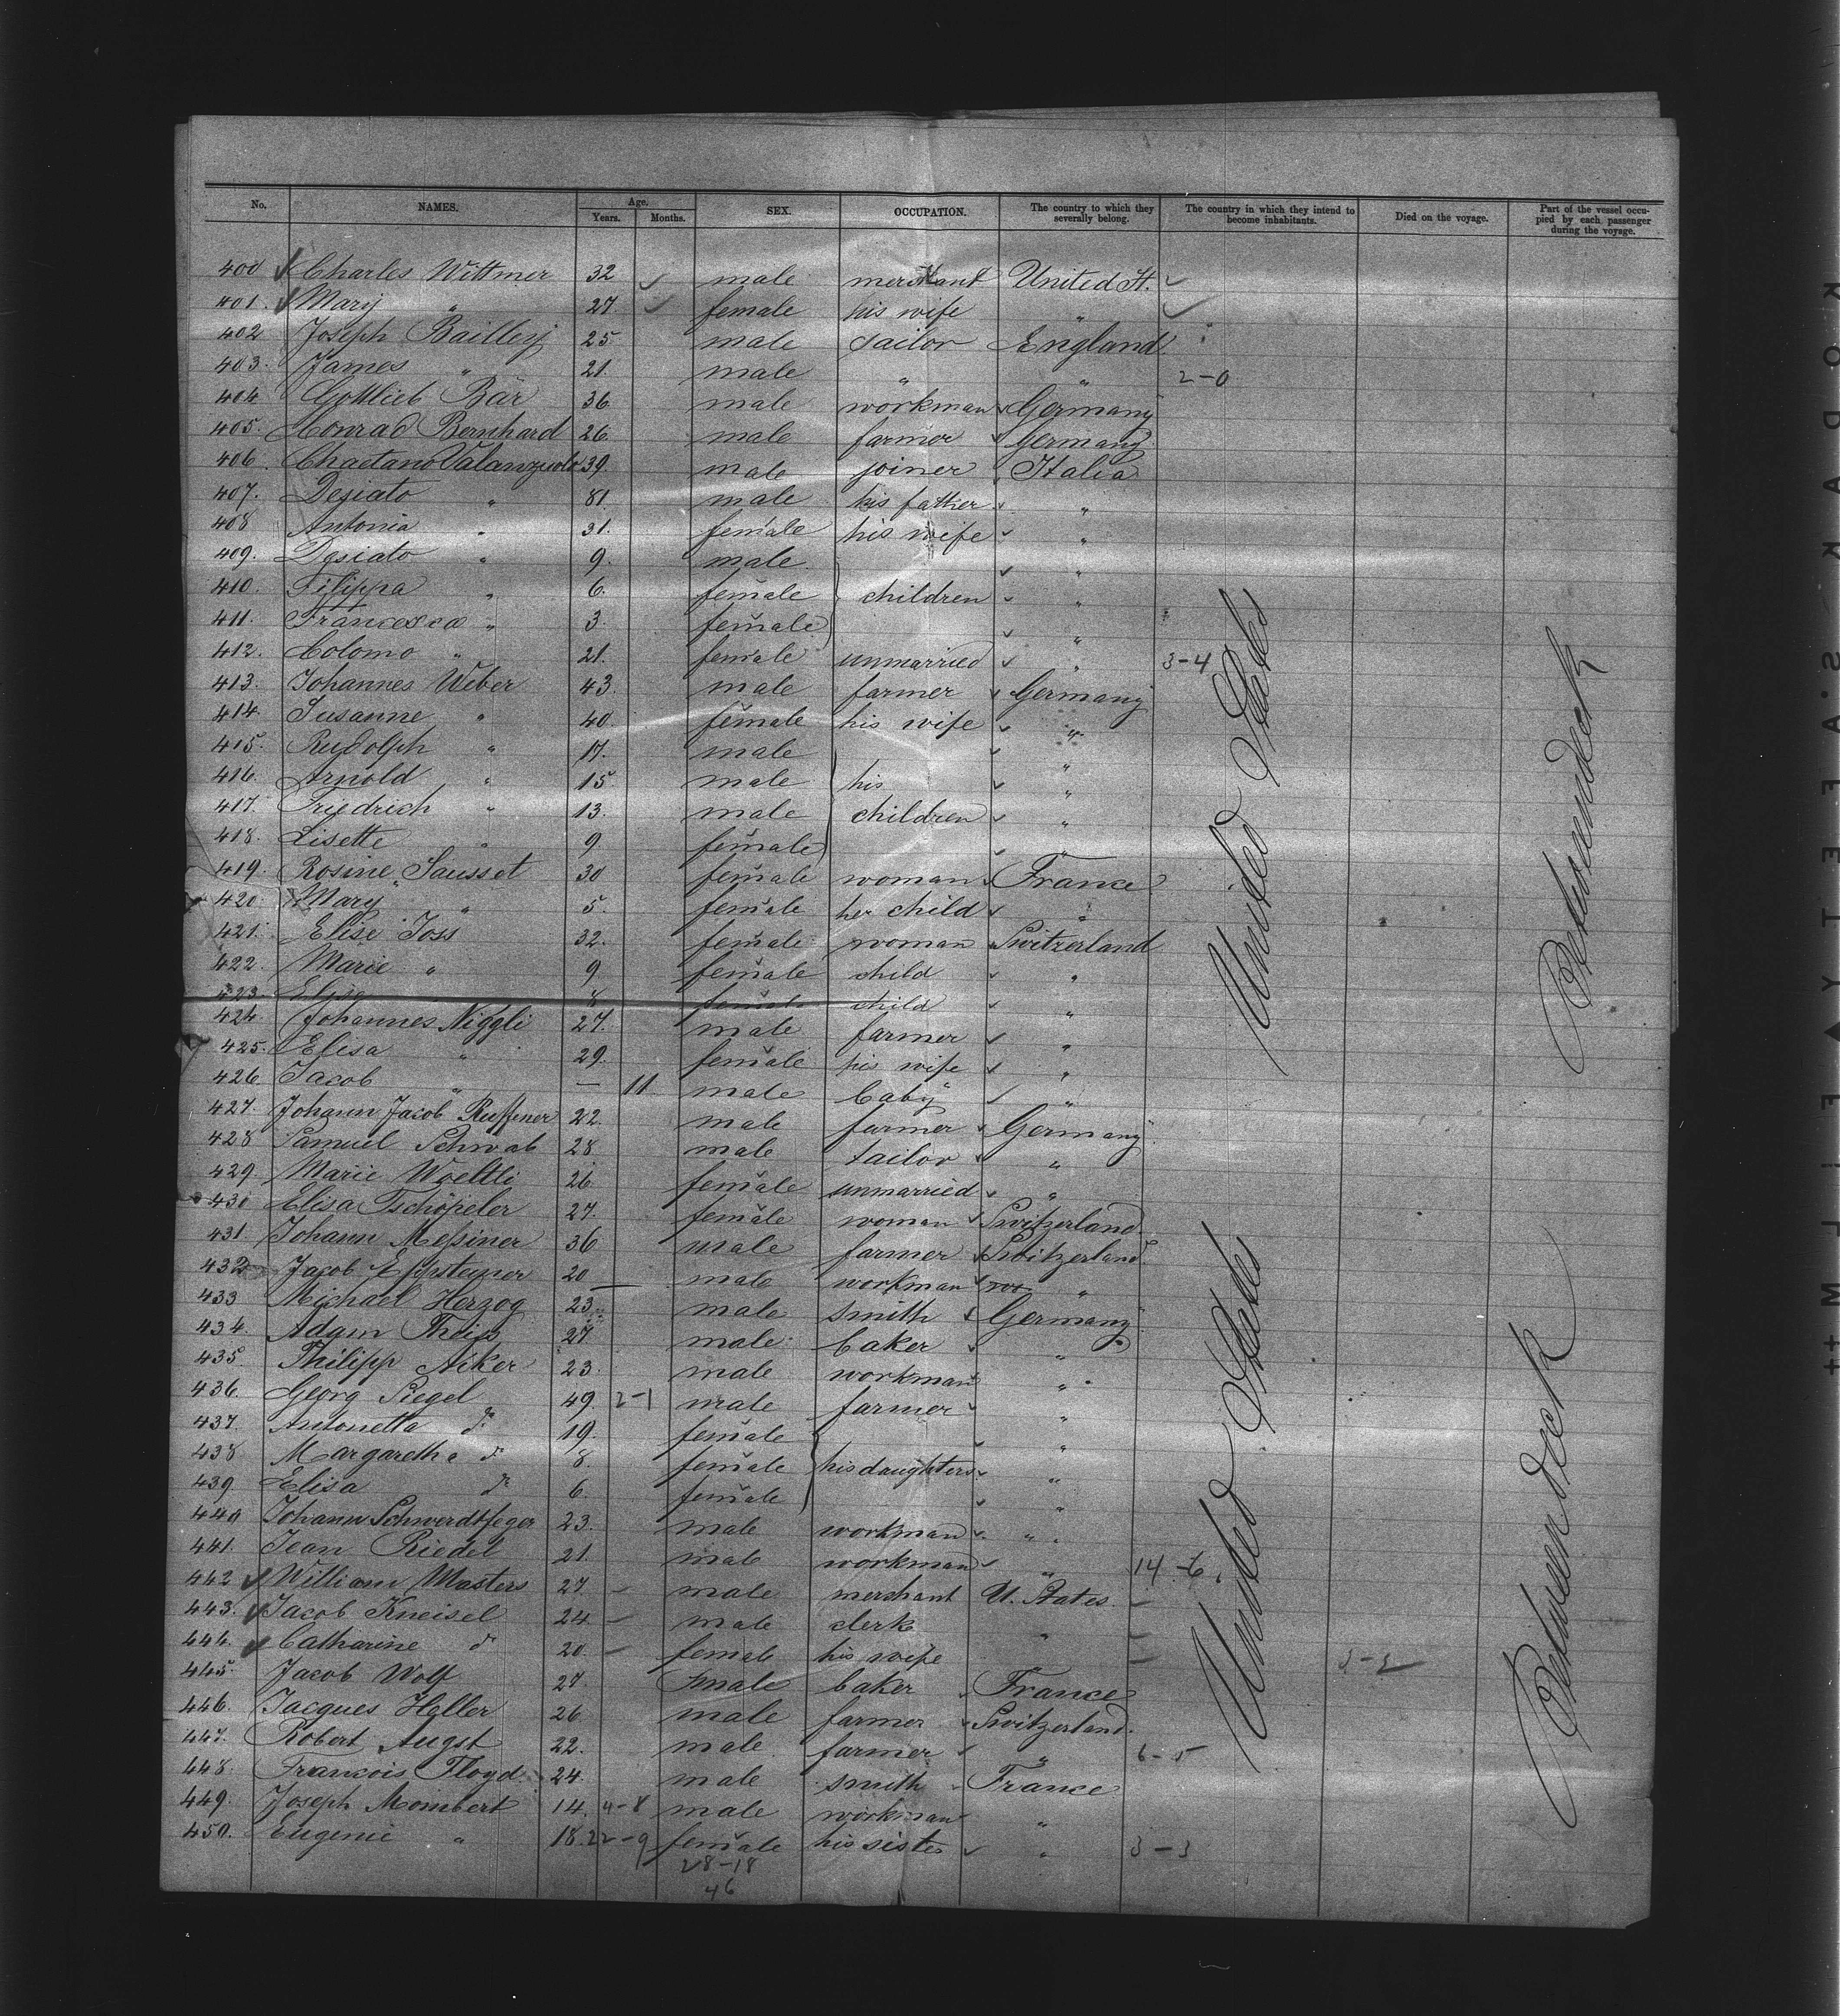 No. NAMES. Age. Years. Months. SEX. OCCUPATION. The country to which they severally belong. The country in which they intend to become inhabitants. Died on the voyage. Part of the vessel occupied by each passenger during the voyage.
400 Charles Wittmer 32 male merchant United St.
401. Mary " 27. female his wife "
402 Joseph Baillery 25 male sailor England
403. James " 21. male " " 2-0
404. Gottlieb Bär 36 male workman Germany
405. Conrad Bernhard 26 male farmer Germany
406. Chaetano Valanzuolo 39. male joiner Italia
407. Desiato " 81. male his father "
408 Antonia " 31. female his wife "
409. Desiato " 9. male "
410. Filippa " 6. female children "
411. Francesca " 3. female "
412. Colomo " 21. female unmarried " 3-4
413. Johannes Weber 43. male farmer Germany
414. Susanne " 40. female his wife "
415. Rudolph " 17. male "
416. Arnold " 15 male his "
417. Friedrich " 13. male children "
418. Lisette " 9 female "
419. Rosine Sausset 30 female woman France
420. Mary " 5. female her child "
421. Elise Joss 32. female woman Switzerland
422. Marie " 9. female child "
423. Elisa 8 female child "
424. Johannes Niggli 27. male farmer "
425. Elisa " 29. female his wife "
426 Jacob " — 11. male baby "
427. Johann Jacob Ruffener 22. male farmer Germany
428 Samuel Schwab 28 male tailor "
429. Marie Woeltli 26 female unmarried "
430 Elisa Tschöpeler 27. female woman Switzerland
431 Johann Meßiner 36 male farmer Switzerland
432 Jacob Eppsteiner 20 male workman "
433 Michael Herzog 23 male smith Germany
434. Adam Theiss 27 male baker "
435. Philipp Aker 23. male workman "
436. Georg Riegel 49. 2-1 male farmer "
437. Antonetta do 19. female "
438 Margaretha do 8. female his daughters "
439. Elisa do 6. female "
440 Johann Schwerdtfeger 23. male workman "
441. Jean Riedel 21. male workman " 14-6.
442 William Masters 27. male merchant U. States
443. Jacob Kneisel 24. male clerk "
444. Catharine do 20. female his wife "
445. Jacob Wolf 27. male baker France
446. Jacques Heller 26 male farmer Switzerland.
447. Robert Augst 22. male farmer " 6-5
448. Francois Floyd 24. male smith France
449. Joseph Mombert 14. 4-8 male workman "
450. Eugenie " 18. 22-9 female his sister " 3-3
28-18
46
United States
Betweendeck
United States
Betweendeck
KODAK S.A FETY